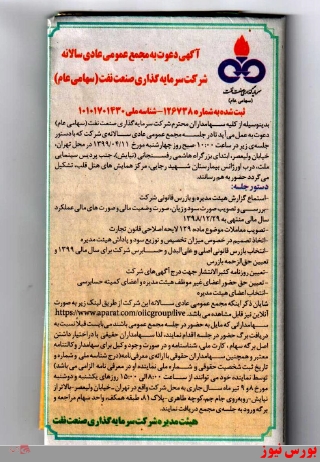 آگهی دعوت به مجمع عمومی عادی سالانه
شرکت سرمایه گذاری صنعت نفت (سهامی عام)
سرمایه گذاری صنعت نفت
(سهامی عام)
ثبت شده به شماره ۱۲۶۷۳۸ - شناسه ملی ۱۰۱۰۱۷۰۱۴۳۰
بدینوسیله از کلیه سهامداران محترم شرکت سرمایه گذاری صنعت نفت (سهامی عام)
دعوت به عمل می آید تا در جلسه مجمع عمومی عادی سالانه ی شرکت که با دستور
جلسه ی زیر در ساعت ۱۰:۰۰ صبح روز چهارشنبه مورخ ۱۳۹۹/۰۴/۱۱ در محل تهران،
خیابان ولیعصر، ابتدای بزرگراه هاشمی رفسنجانی (نیایش)، جنب پردیس سینمایی
ملت، درب اورژانس بیمارستان شهید رجایی، مرکز همایش های قلب، تشکیل
می گردد حضور به هم رسانند.
دستور جلسه:
- استماع گزارش هیئت مدیره و بازرس قانونی شرکت
- بررسی و تصویب صورت سود و زیان، صورت وضعیت مالی و صورت های مالی عملکرد
سال مالی منتهی به ۱۳۹۸/۱۲/۲۹
- تصویب معاملات موضوع ماده ۱۲۹ لایحه اصلاحی قانون تجارت
- اتخاذ تصمیم در خصوص میزان تخصیص و توزیع سود و پاداش هیئت مدیره
- انتخاب بازرس قانونی اصلی و علی البدل و حسابرس شرکت برای سال مالی ۱۳۹۹ و
تعیین حق الزحمه بازرس
- تعیین روزنامه کثیرالانتشار جهت درج آگهی های شرکت
- تعیین حق حضور اعضای غیر موظف هیئت مدیره و اعضای کمیته حسابرسی
- انتخاب اعضای هیئت مدیره
شایان ذکر اینکه مجمع عمومی عادی سالانه این شرکت از طریق لینک زیر به صورت
آنلاین نیز قابل مشاهده می باشد. https://www.aparat.com/oiicgroup/live
سهامدارانی که مایل به حضور در جلسه مجمع عمومی می باشند می بایست قبلا نسبت به
دریافت برگ حضور در جلسه اقدام نمایند، لذا سهامداران حقیقی با در اختیار داشتن
اصل برگه سهام، کارت ملی، شناسنامه و در صورت وجود وکیل برای سهامدار وکالتنامه
معتبر و همچنین سهامداران حقوقی با ارائه ی معرفی نامه (درج شناسه ملی و شماره و
تاریخ ثبت شخصیت حقوقی و شماره ملی نماینده او در معرفی نامه الزامی می باشد)
توسط نماینده خود می توانند از ساعت ۸:۰۰ الی ۱۵:۰۰ روزهای یکشنبه و دوشنبه
مورخ ۸ و ۹ تیرماه سال جاری به محل شرکت واقع در تهران - خیابان ولیعصر - بالاتر از
نیایش - روبه روی جام جم - کوچه طاهری - پلاک ۸۱، طبقه همکف، واحد سهام مراجعه و
برگه ورود به جلسه ی مجمع دریافت نمایند.
هیئت مدیره شرکت سرمایه گذاری صنعت نفت
بورس نیوز